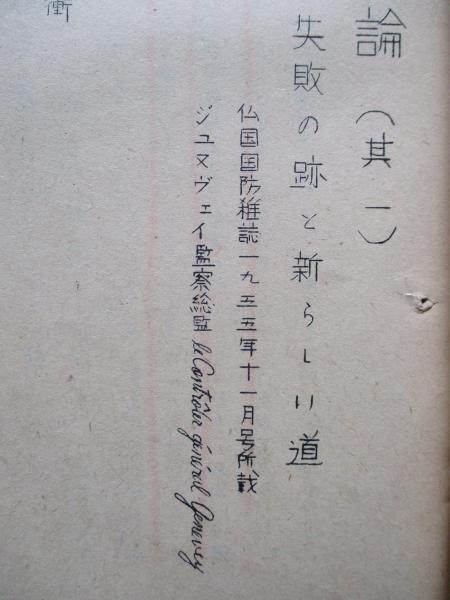 論（其一）
失敗の跡と新らしい道
仏国国防雑誌一九五五年十一月号所載
ジュヌヴェイ監察総監 le Contrôler général Genevey
衝